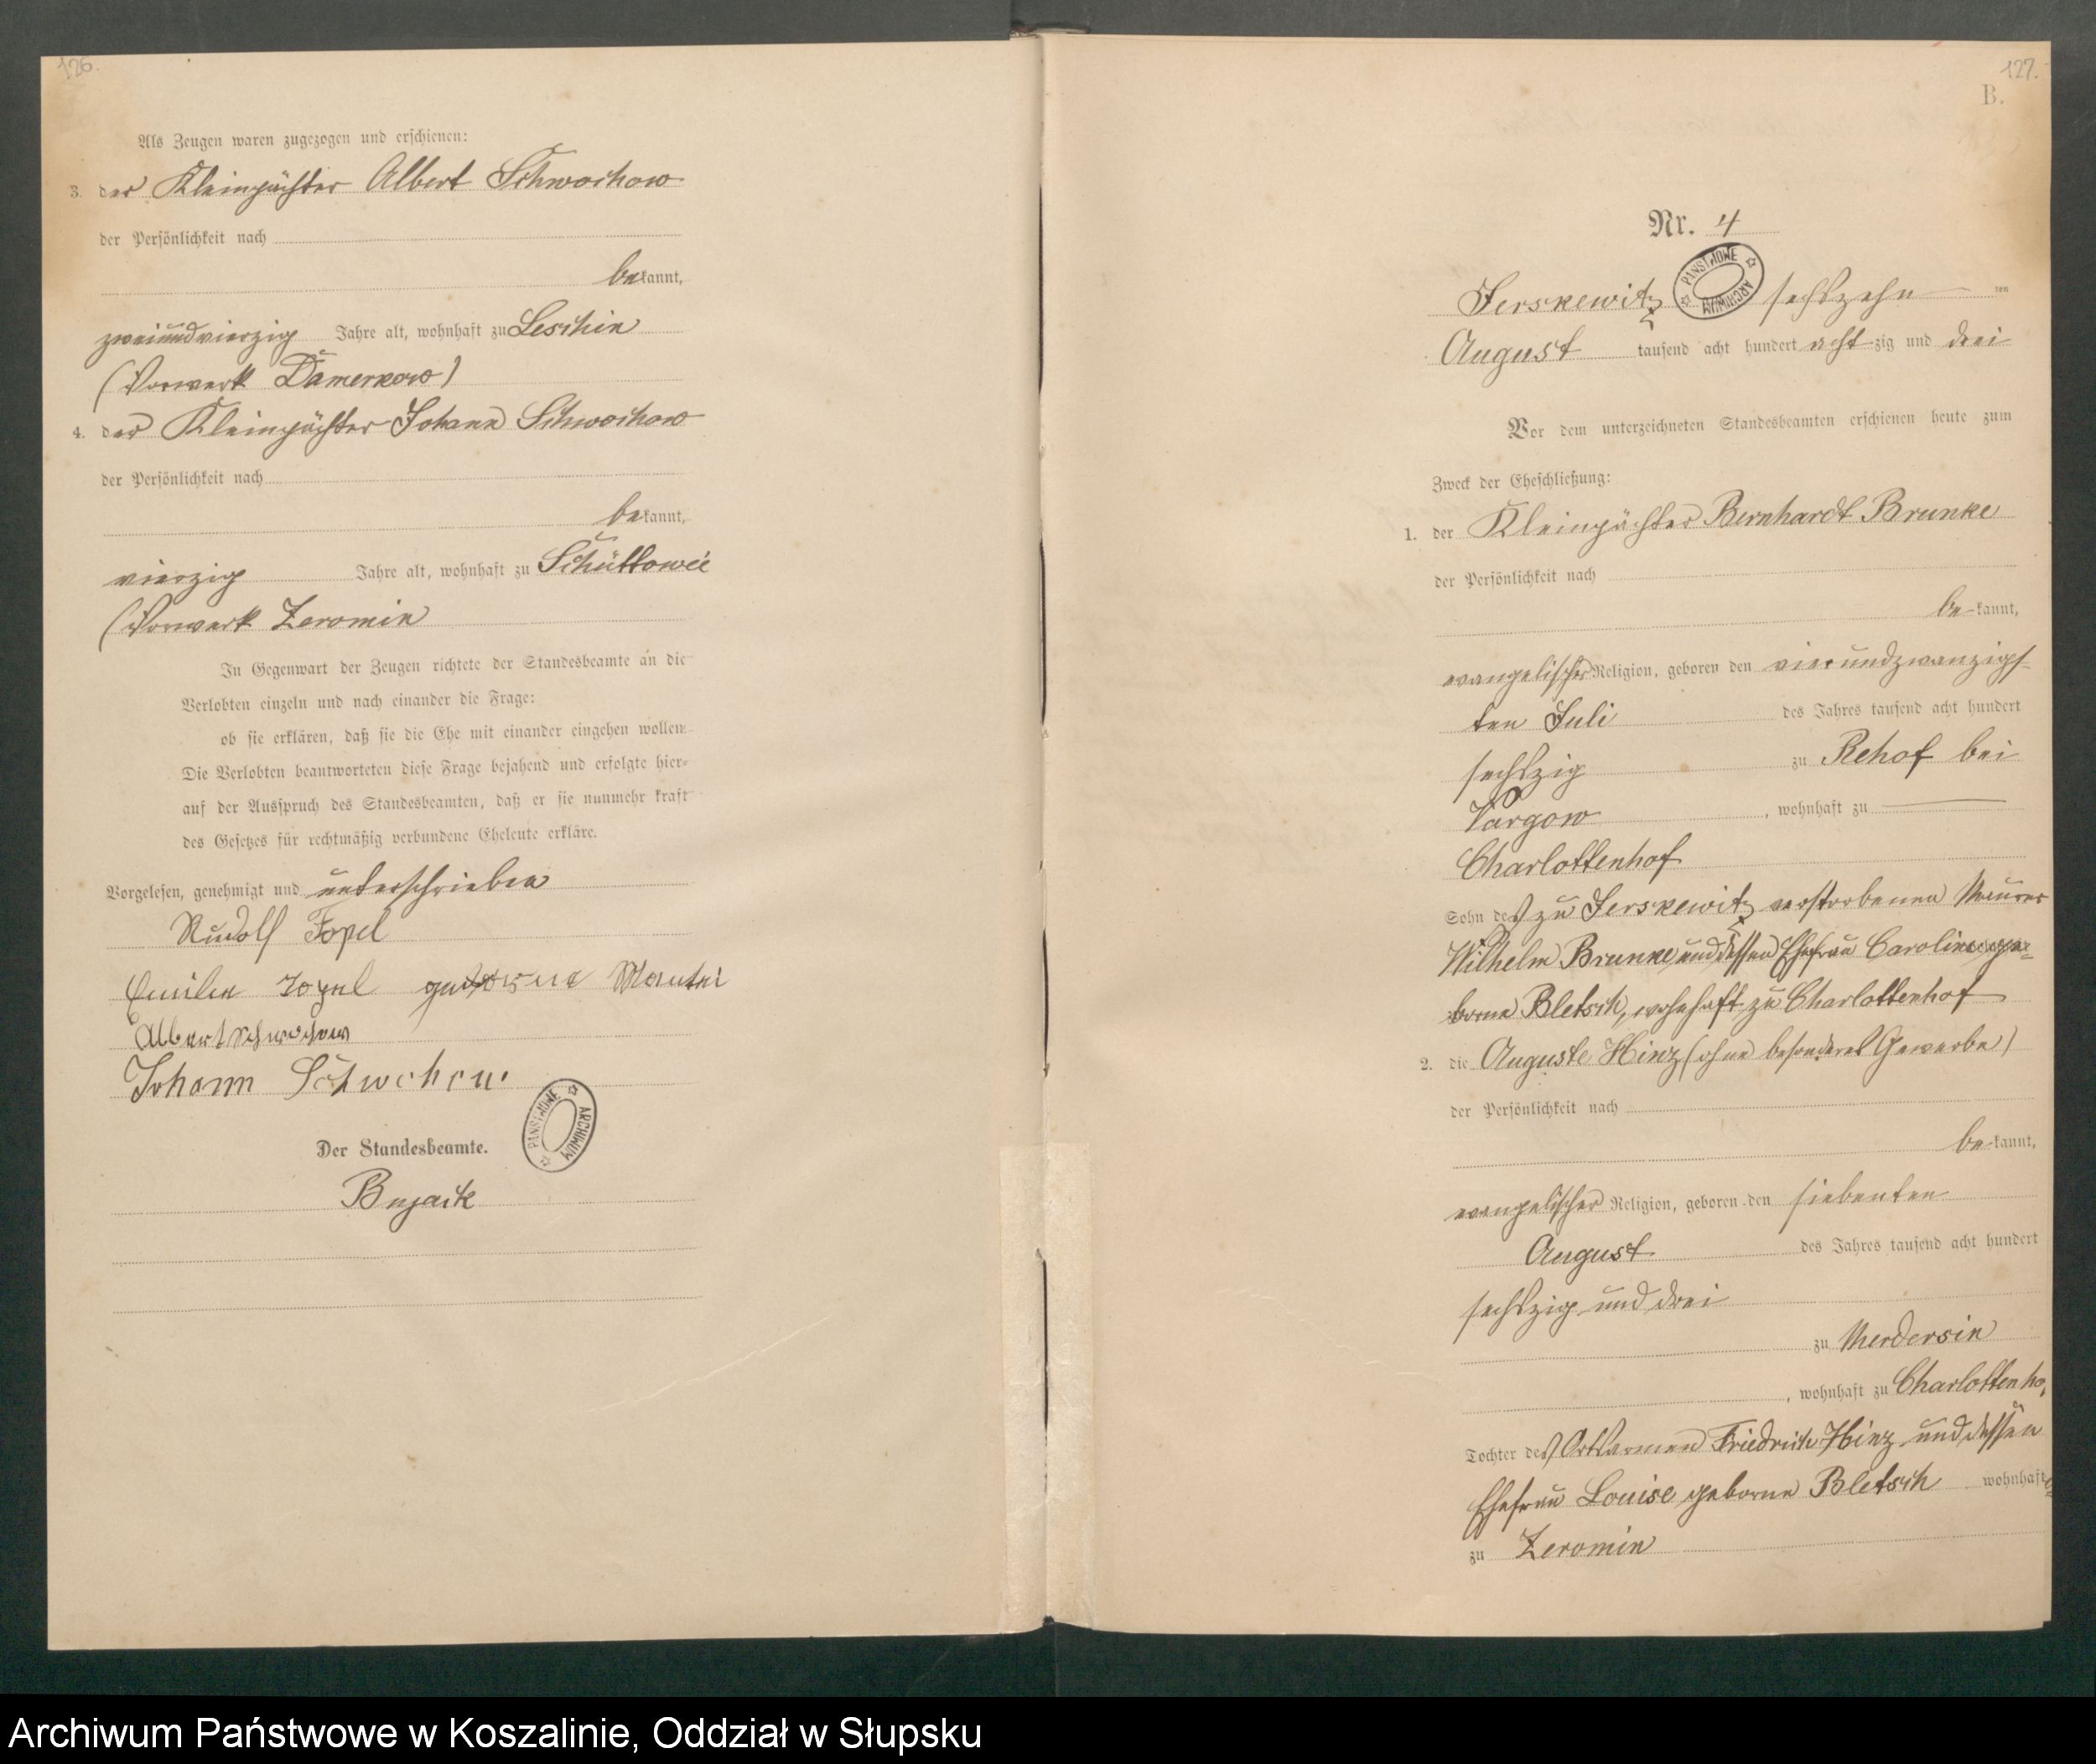 126.
Als Zeugen waren zugezogen und erschienen:
3. der Kleinpächter Albert Schwochow
der Persönlichkeit nach
bekannt,
zweiundvierzig Jahre alt, wohnhaft zu Leschin
(Vorwerk Damerkow)
4. der Kleinpächter Johann Schwochow
der Persönlichkeit nach
bekannt,
vierzig Jahre alt, wohnhaft zu
(Vorwerk Zeromin
In Gegenwart der Zeugen richtete der Standesbeamte an die
Verlobten einzeln und nach einander die Frage:
ob sie erklären, daß sie die Ehe mit einander eingehen wollen.
Die Verlobten beantworteten diese Frage bejahend und erfolgte hier-
auf der Ausspruch des Standesbeamten, daß er sie nunmehr kraft
des Gesetzes für rechtmäßig verbundene Eheleute erkläre.
Vorgelesen, genehmigt und unterschrieben
Rudolf Topel
Topel geborene Mantei
Albert Schwochow
Johann
PAŃSTWOWE ARCHIWUM
Der Standesbeamte.
Bujack
127.
B.
Nr. 4
PAŃSTWOWE ARCHIWUM
Jerskewitz sechszehn ten
August tausend acht hundert achtzig und drei
Vor dem unterzeichneten Standesbeamten erschienen heute zum
Zweck der Eheschließung:
1. der Kleinpächter Bernhardt Brunke
der Persönlichkeit nach
be-kannt,
evangelischer Religion, geboren den vierundzwanzigs-
ten Juli des Jahres tausend acht hundert
sechszig zu Rehof bei
Vargow, wohnhaft zu
Charlottenhof
Sohn des zu Jerskewitz verstorbenen Maurer
Wilhelm Brunke und dessen Ehefrau Caroline ge-
borne Bletsch, wohnhaft zu Charlottenhof
2. die Auguste Hinz (ohne besonderes Gewerbe)
der Persönlichkeit nach
be-kannt,
evangelischer Religion, geboren den siebenten
August des Jahres tausend acht hundert
sechszig und drei
zu Merdersin
, wohnhaft zu Charlottenho,
Tochter des Ortsarmen Friedrich Hinz und dessen
Ehefrau Louise geborne Bletsch wohnhaft
zu Zeromin
Archiwum Państwowe w Koszalinie, Oddział w Słupsku